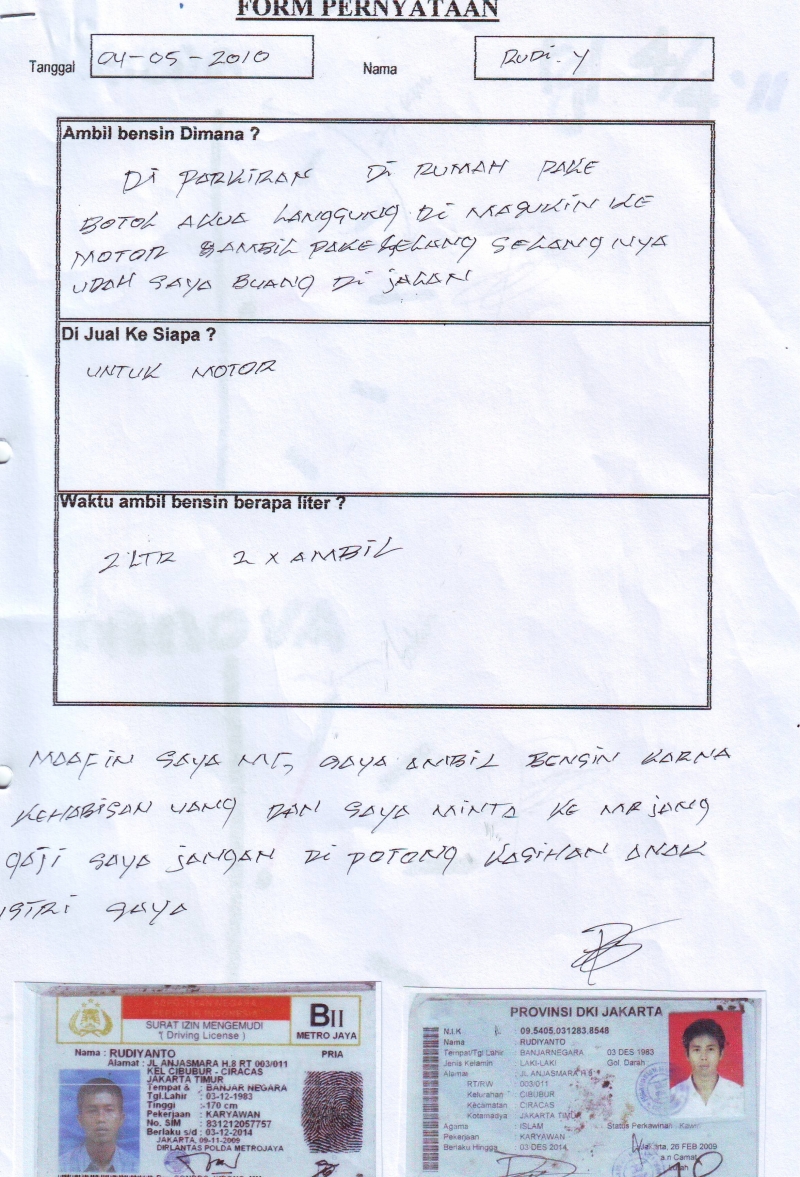 FORM PERNYATAAN
Tanggal 04-05-2010 Nama RUDI. Y
Ambil bensin Dimana ?
Di PARKIRAN Di RUMAH PAKE
BOTOL AKUA LANGSUNG Di MASUKIN KE
MOTOR SAMBIL PAKE SELANG SELANG NYA
UDAH SAYA BUANG Di JALAN
Di Jual Ke Siapa ?
UNTUK MOTOR
Waktu ambil bensin berapa liter ?
2 LTR 2 X AMBIL
MAAFIN SAYA SAYA AMBIL BENSIN KARNA
KEHABISAN UANG DAN SAYA MINTA KE
GAJI SAYA JANGAN Di POTONG KASIHAN ANAK
ISTRI SAYA
SURAT IZIN MENGEMUDI
( Driving License )
BII
METRO JAYA
Nama : RUDIYANTO PRIA
Alamat : JL ANJASMARA H.8 RT 003/011
KEL CIBUBUR - CIRACAS
JAKARTA TIMUR
Tempat & : BANJAR NEGARA
Tgl.Lahir : 03-12-1983
Tinggi : 170 cm
Pekerjaan : KARYAWAN
No. SIM : 831212057757
Berlaku s/d : 03-12-2014
JAKARTA, 09-11-2009
DIRLANTAS POLDA METROJAYA
PROVINSI DKI JAKARTA
N.I.K : 09.5405.031283.8548
Nama : RUDIYANTO
Tempat/Tgl.Lahir : BANJARNEGARA 03 DES 1983
Jenis Kelamin : LAKI-LAKI Gol. Darah :
Alamat : JL ANJASMARA H.8
RT/RW : 003/011
Kelurahan : CIBUBUR
Kecamatan : CIRACAS
Kotamadya : JAKARTA TIMUR
Agama : ISLAM Status Perkawinan : Kawin
Pekerjaan : KARYAWAN
Berlaku Hingga : 03 DES 2014 Jakarta, 26 FEB 2009
a.n Camat
Lurah